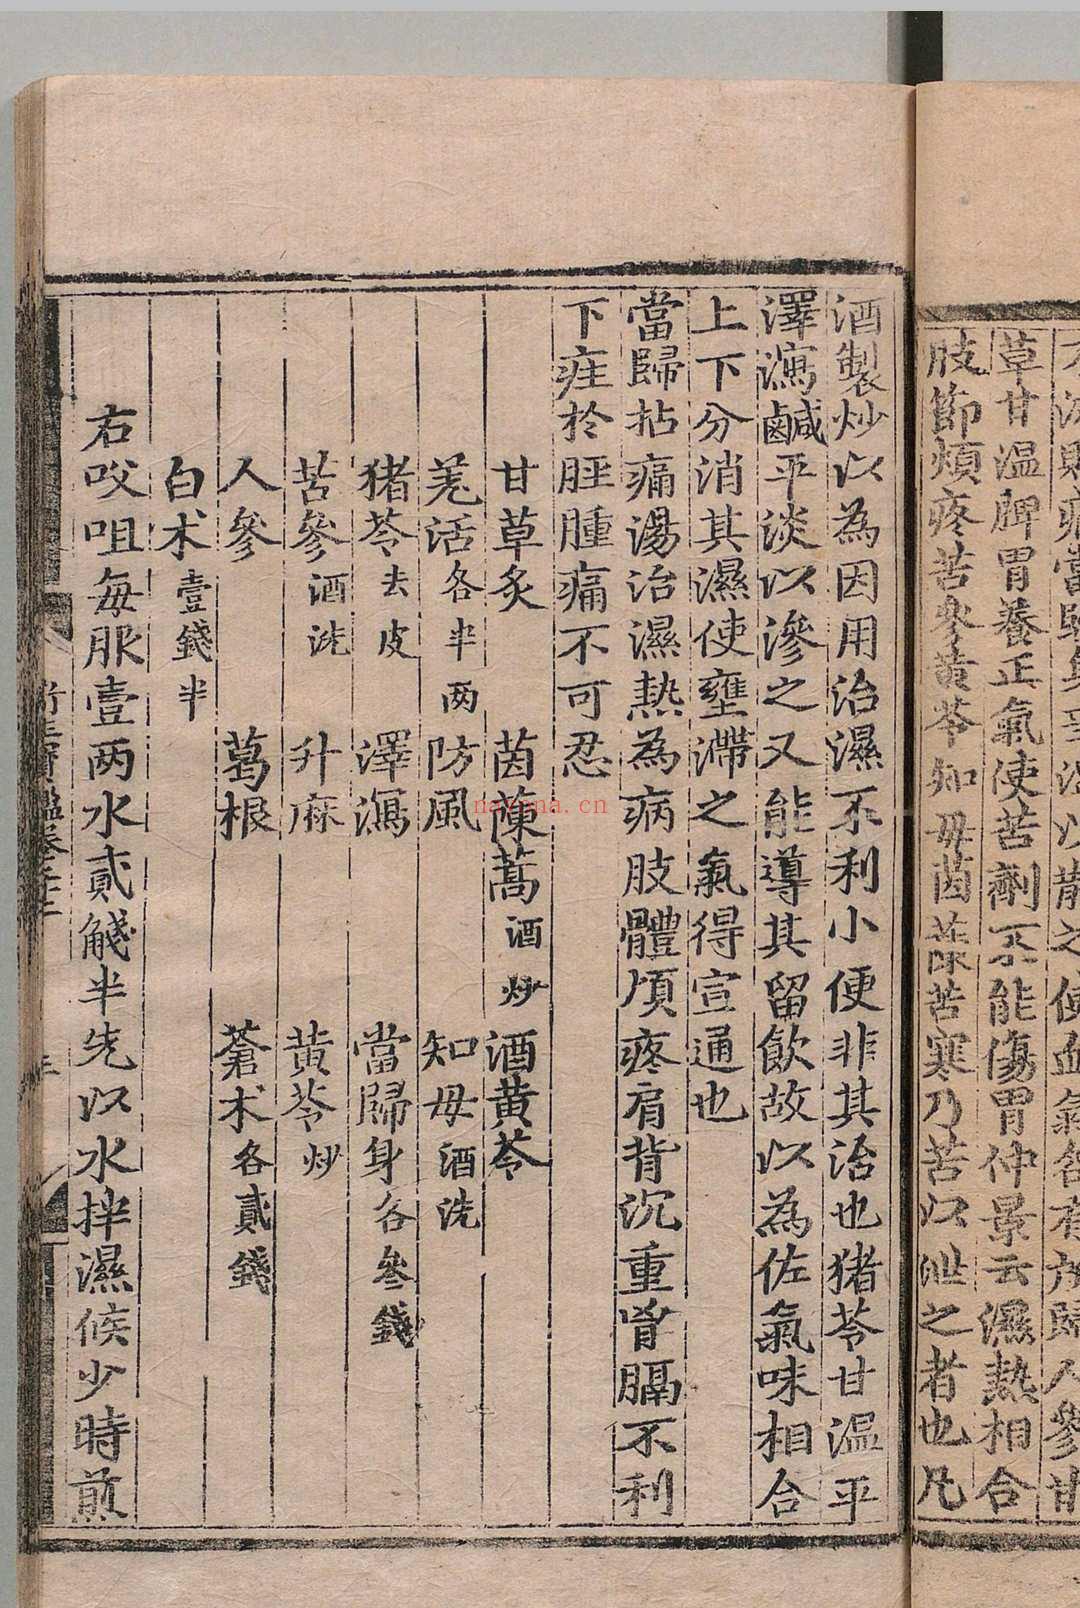 草甘温脾胃養正氣使苦劑不能傷胃仲景云濕熱相合
肢節煩疼苦參黄芩知毋茵蔯苦寒乃苦以泄之者也凡
酒製炒以為因用治濕不利小便非其治也猪苓甘温平
澤瀉鹹平淡以滲之又能導其留飲故以為佐氣味相合
上下分消其濕使壅滯之氣得宣通也
當歸拈痛湯治濕熱為病肢體煩疼肩背沉重胷膈不利
下疰於脛腫痛不可忍
甘草炙 茵蔯蒿酒炒 酒黄芩
羌活各半两 防風 知毋酒洗
猪苓去皮 澤瀉 當歸身各叁錢
苦參酒洗 升麻 黄芩炒
人參 葛根 蒼术各貳錢
白术壹錢半
右㕮咀每服壹两水貳觥半先以水拌濕候少時煎
nayona.cn